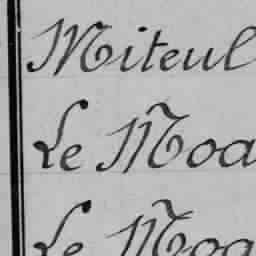 Miteul
Le Moa
Le Moa